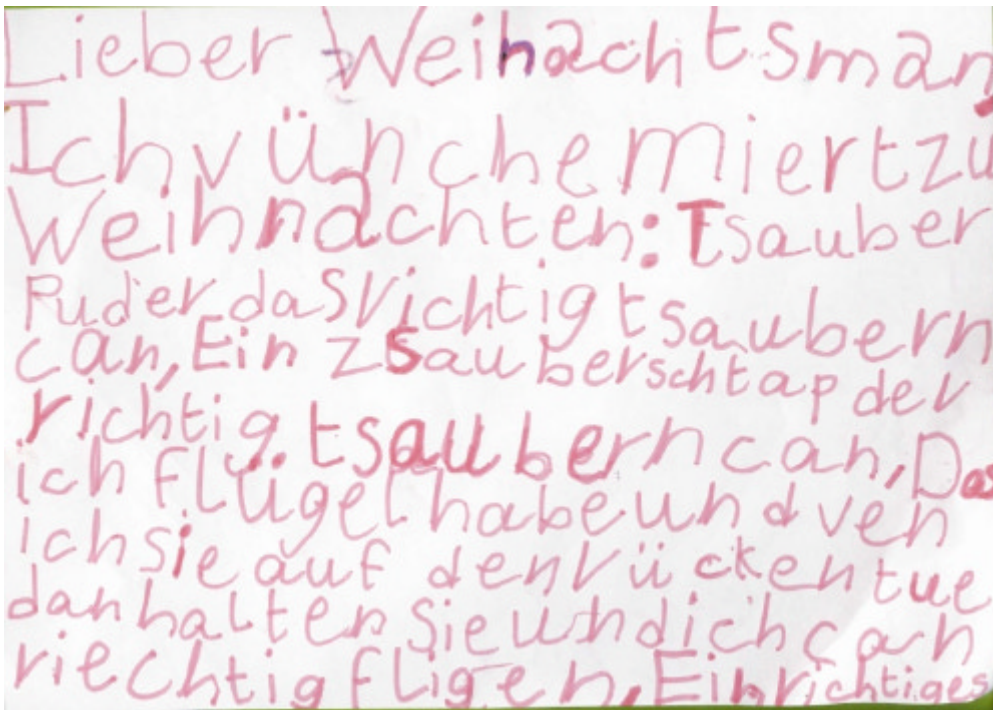 Lieber Weihnachtsman
Ich vünche miert zu
Weihnachten: Tsauber
Puder das richtig tsaubern
can, Ein zsauberschtap der
richtig. tsaubern can, Das
ich flügel habe und ven
ich sie auf den rücken tue
dan halten Sie und ich can
riechtig fligen, Ein richtiges